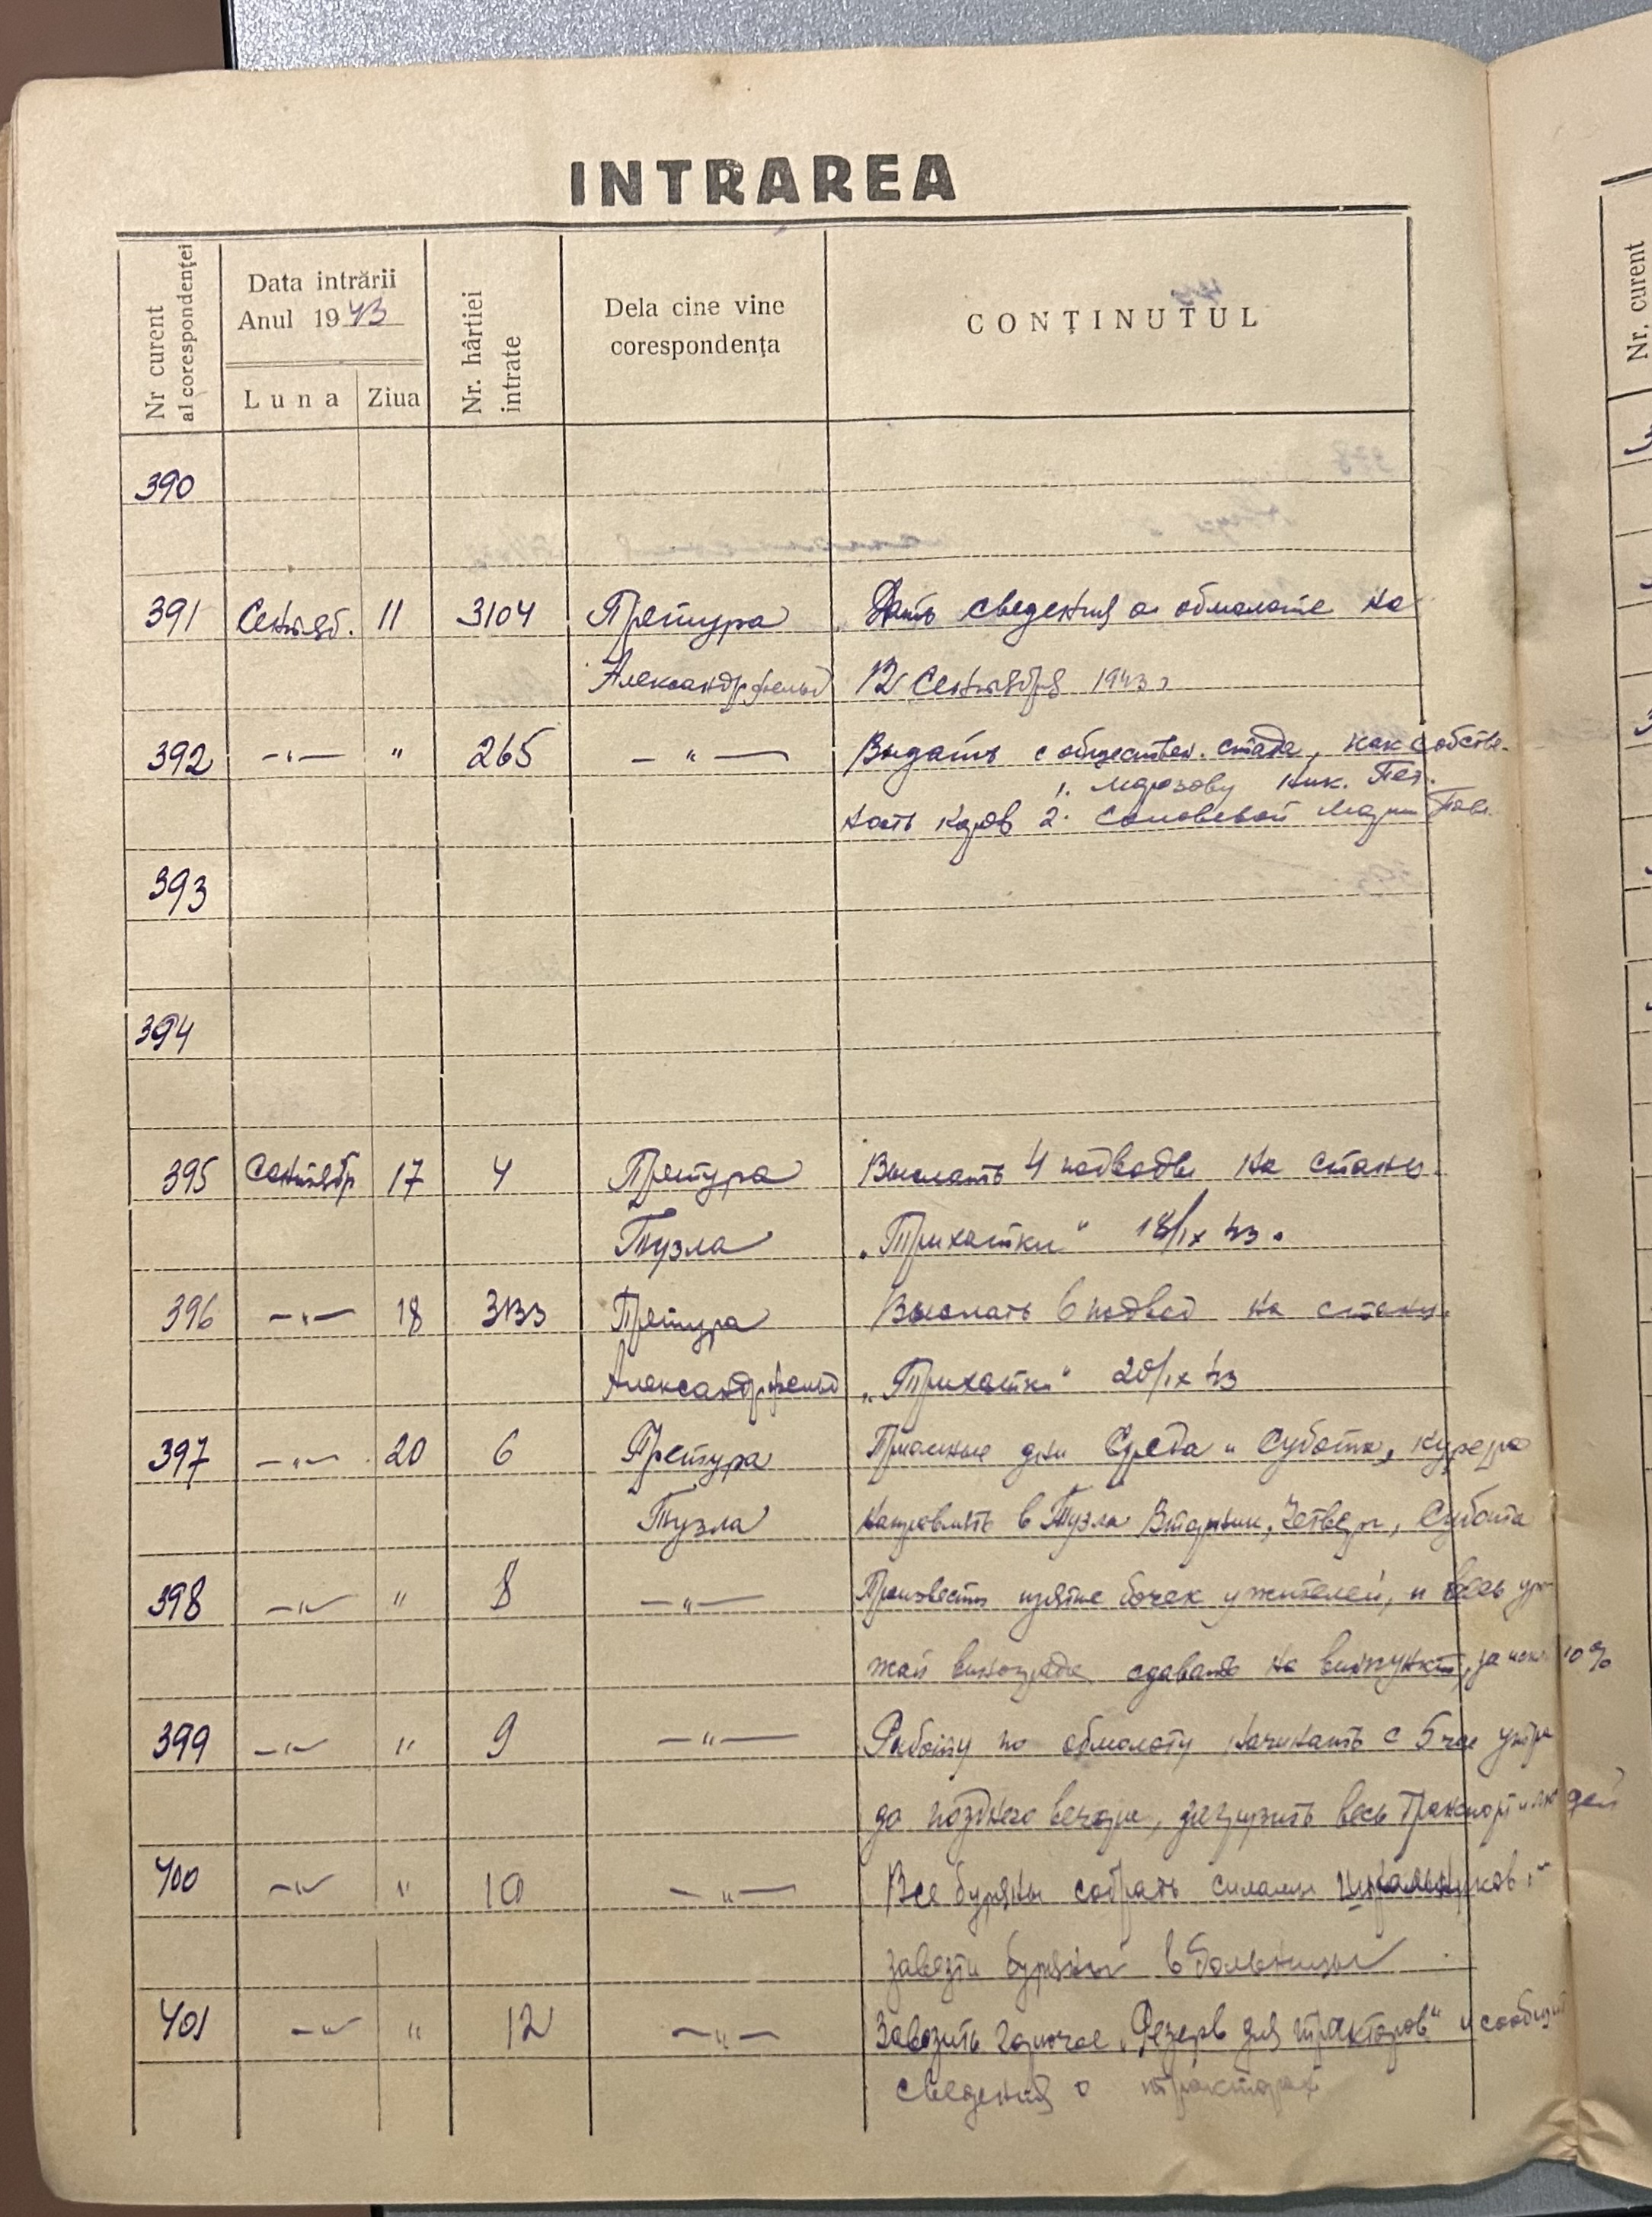 INTRAREA
Nr curent al corespondenței
Data intrării
Anul 1943
Luna Ziua
Nr. hârtiei intrate
Dela cine vine corespondența
CONȚINUTUL
Nr. curent
390
391 Сентяб. 11 3104 Претура Дать сведения о обмолоте на
Александрфельд 12 Сентября 1943 г
392 —„— " 265 —„— Выдать с обществен. стада, как собстве-
1. Морозову Ник. Пет.
ность коров 2. Соловьевой Марии Павл.
393
394
395 Сентябр 17 4 Претура Выслать 4 подводы на станц.
Тузла „Трихатки" 18/IX 43.
396 —„— 18 3133 Претура Выслать 6 подвод на станц.
Александрфельд „Трихатки" 20/IX 43
397 —„— 20 6 Претура Приемные дни Среда и Субота, курера
Тузла направлять в Тузла Вторник, Четверг, Субота
398 —„— " 8 —„— Произвести изятие бочек у жителей, и весь уро-
жай винограда сдавать на винпункт, за искл 10%
399 —„— " 9 —„— Работу по обмолоту начинать с 5 час утра
до позднего вечера, загрузить весь транспорт и людей
400 —„— " 10 —„— Все буряны собрать силами школьников и
завезти буряны в больницы
401 —„— " 12 —„— Завозить горючее „Резерв для тракторов" и сообщит
сведения о тракторах